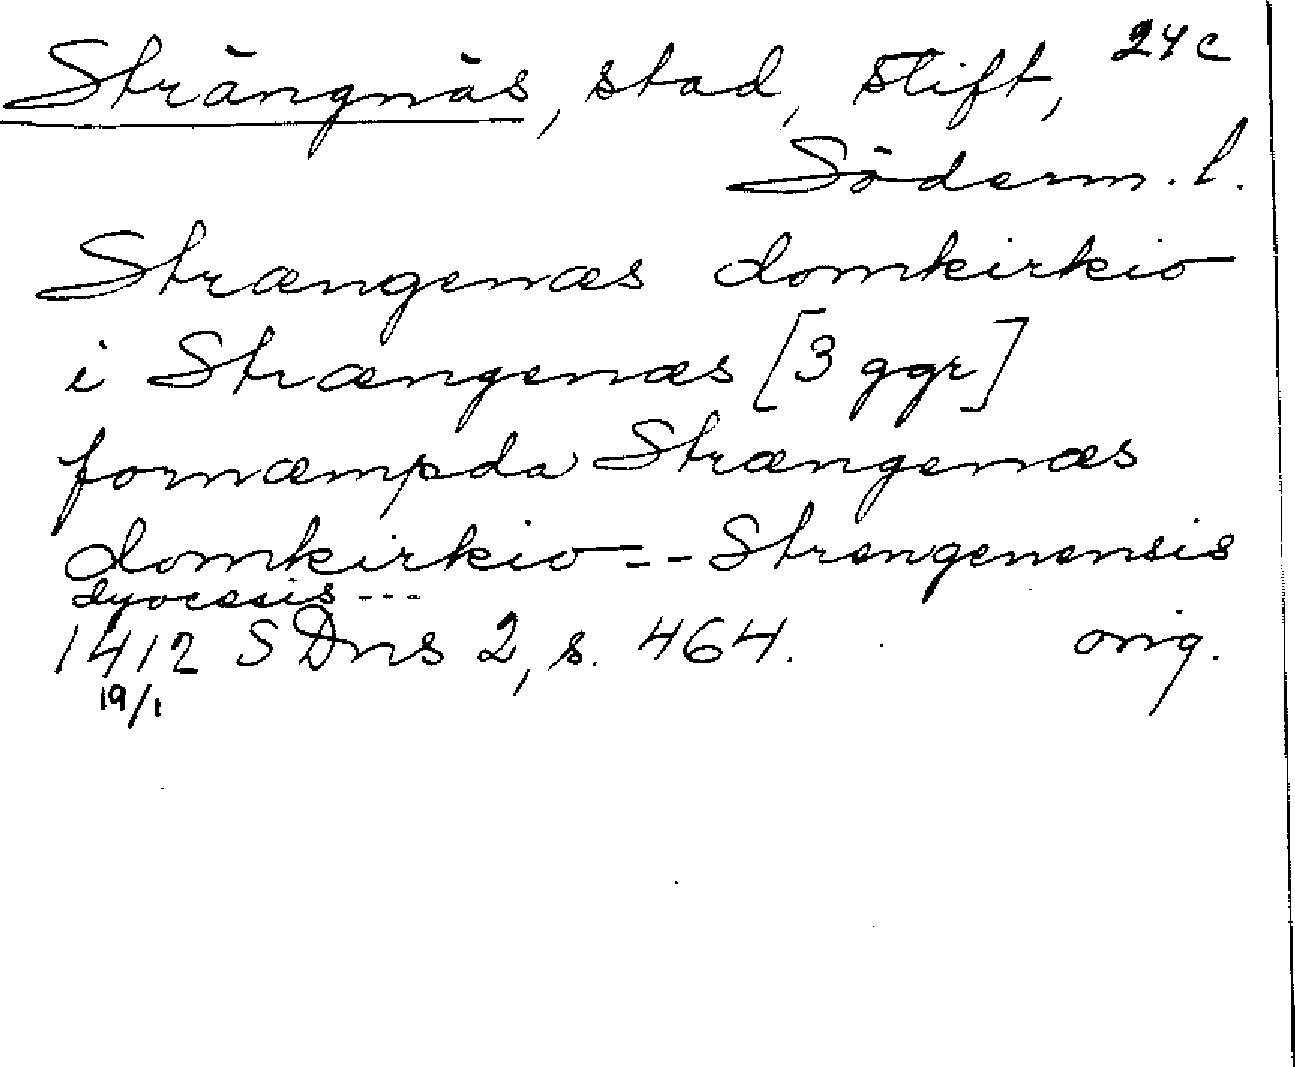 Strängnäs, stad, stift, 24c
Söderm. l.
Strængenæs domkirkio
i Strængenæs [3 ggr]
fornæmpda Strængenæs
domkirkio -- Strengenensis
dyocesis ---
1412 SDns 2, s. 464. orig.
19/1